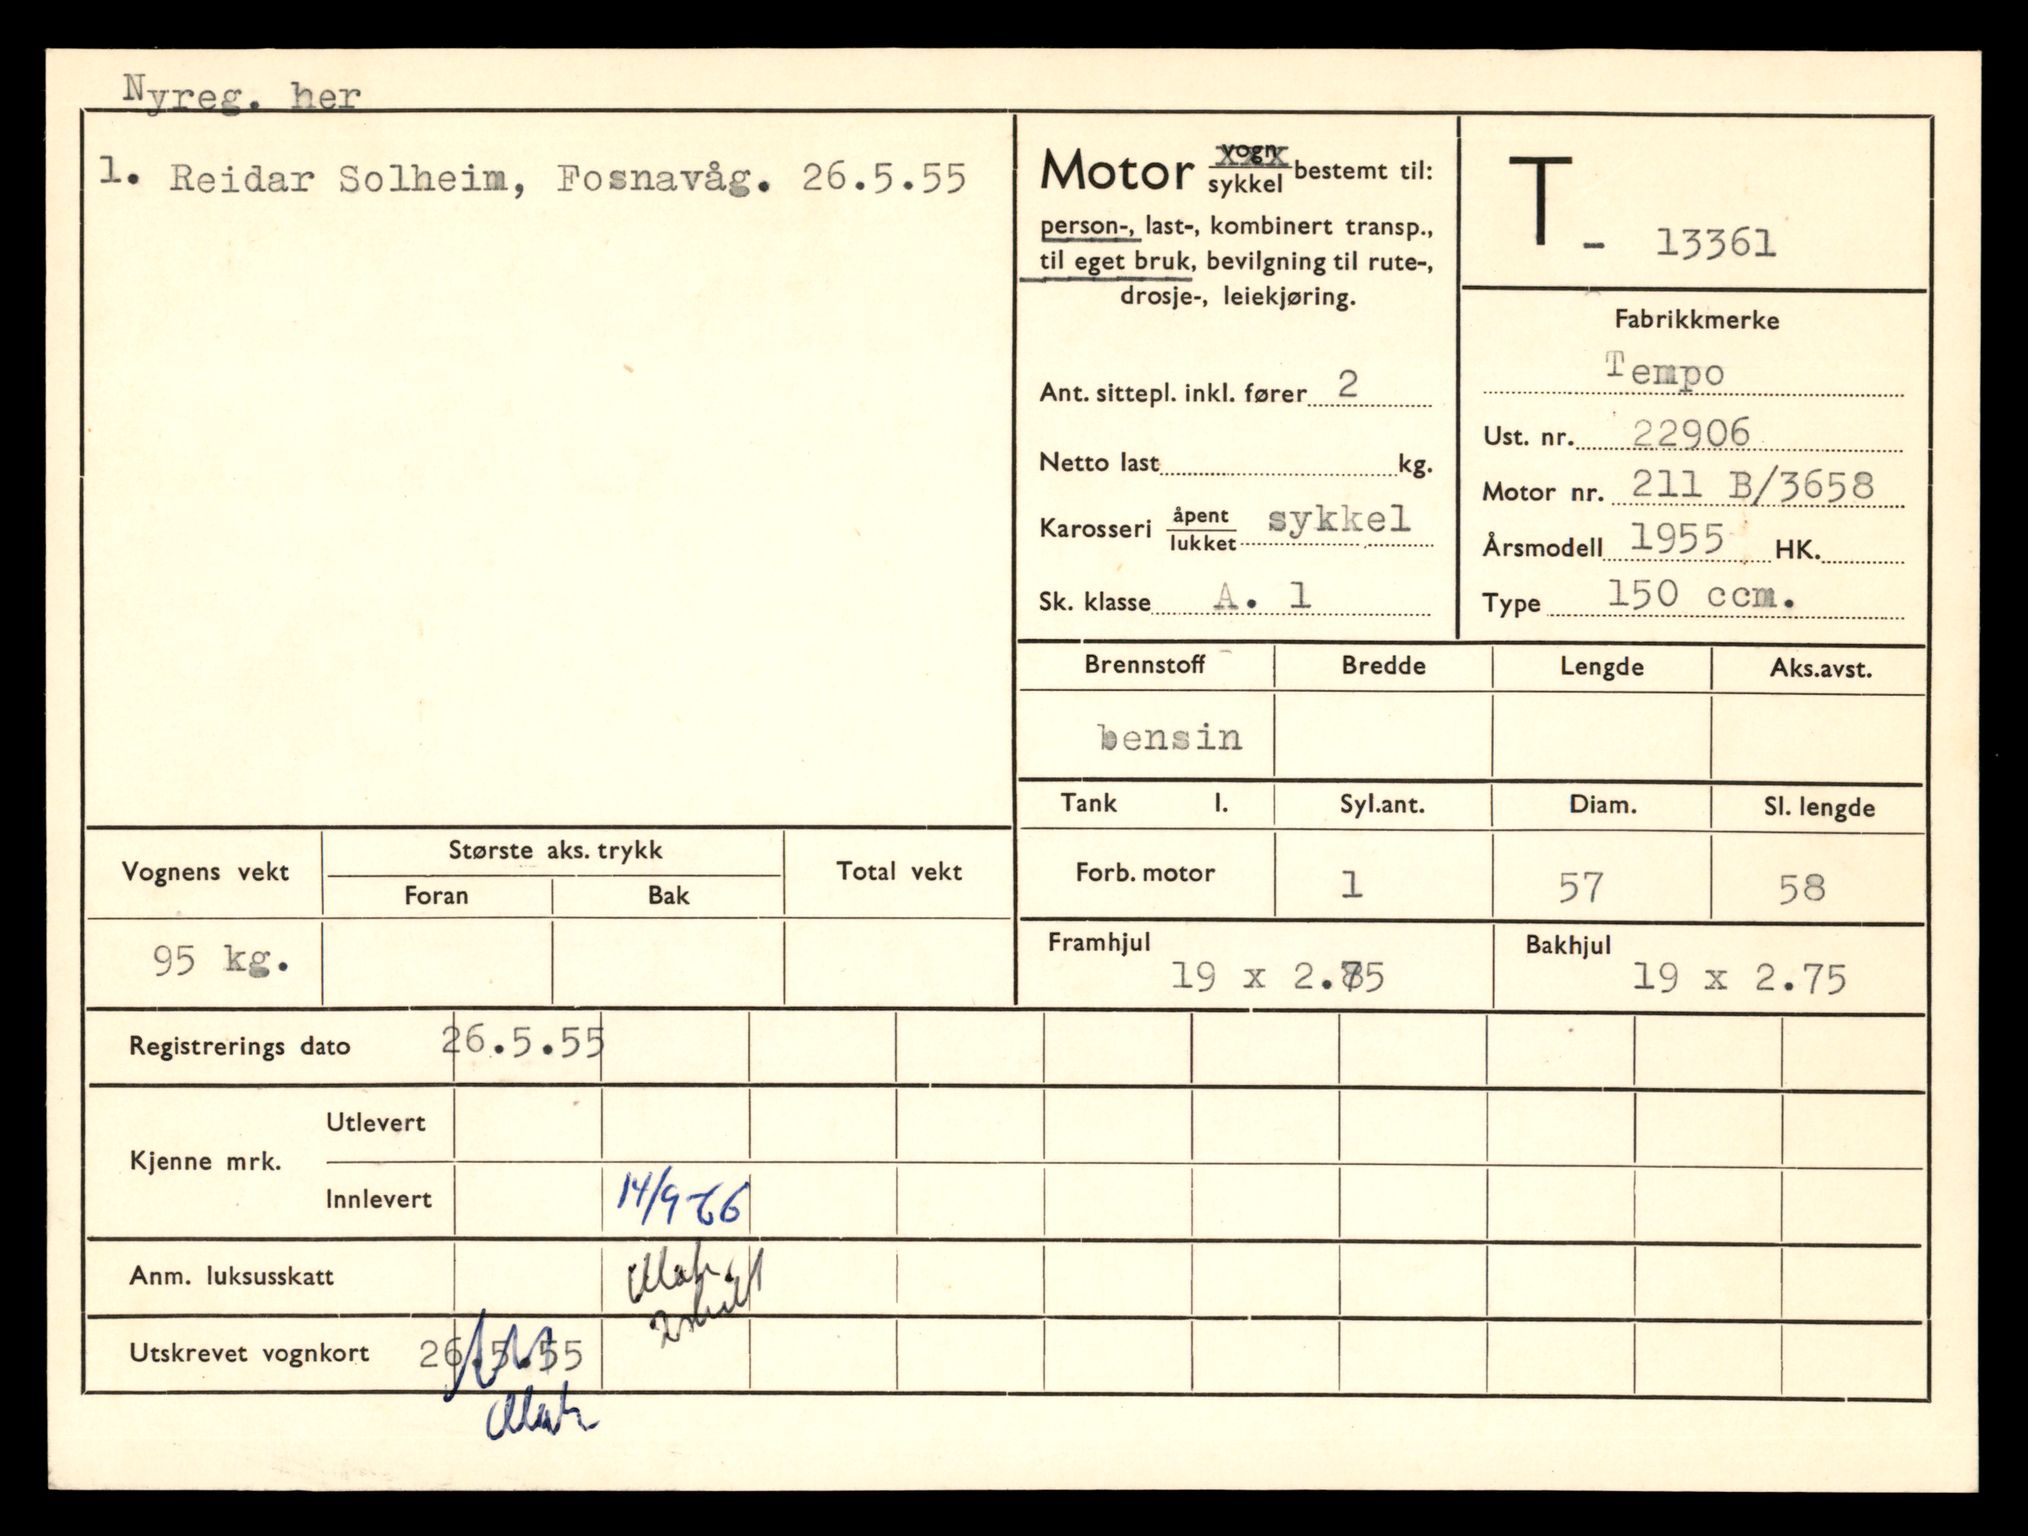 Nyreg. her
1. Reidar Solheim, Fosnavåg. 26.5.55
Motor vogn/sykkel bestemt til:
person-, last-, kombinert transp.,
til eget bruk, bevilgning til rute-,
drosje-, leiekjøring.
Ant. sittepl. inkl. fører 2
Netto last kg.
Karosseri åpent/lukket sykkel
Sk. klasse A. 1
T - 13361
Fabrikkmerke
Tempo
Ust. nr. 22906
Motor nr. 211 B/3658
Årsmodell 1955 HK.
Type 150 ccm.
Brennstoff Bredde Lengde Aks.avst.
bensin
Tank l. Syl.ant. Diam. Sl. lengde
Forb. motor 1 57 58
Framhjul Bakhjul
19 x 2.75 19 x 2.75
Vognens vekt Største aks. trykk Total vekt
Foran Bak
95 kg.
Registrerings dato 26.5.55
Kjenne mrk.
Utlevert
Innlevert 14/9-66
Anm. luksusskatt
Utskrevet vognkort 26.5.55